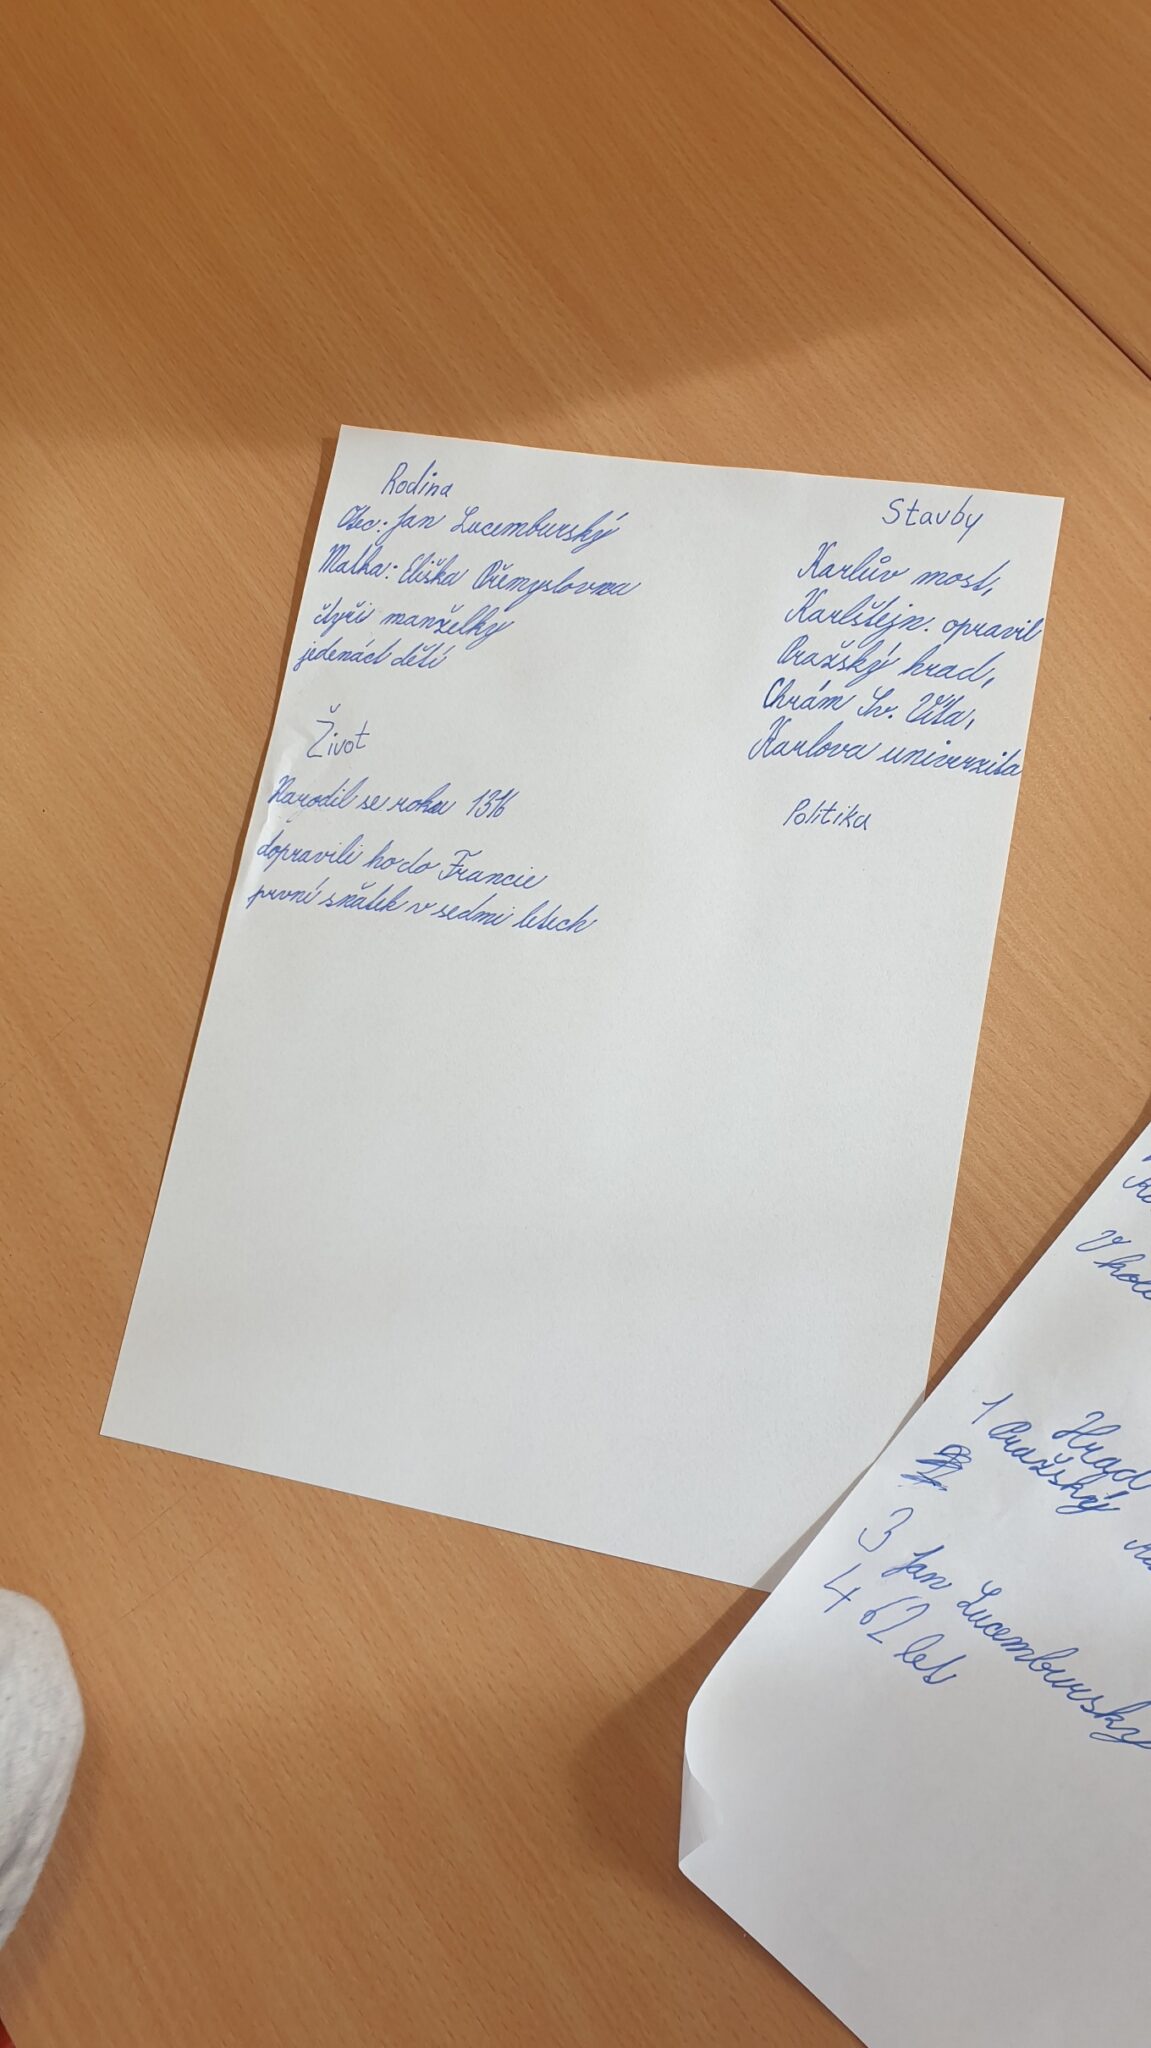 Rodina
Otec: Jan Lucemburský
Matka: Eliška Přemyslovna
čtyři manželky
jedenáct dětí
Život
Narodil se roku 1316
dopravili ho do Francie
první sňatek v sedmi letech
Stavby
Karlův most,
Karlštejn. opravil
Pražský hrad,
Chrám Sv. Víta,
Karlova univerzita
Politika
V
1 Hrad
Pražský
3 Jan Lucemburský
4 62 let